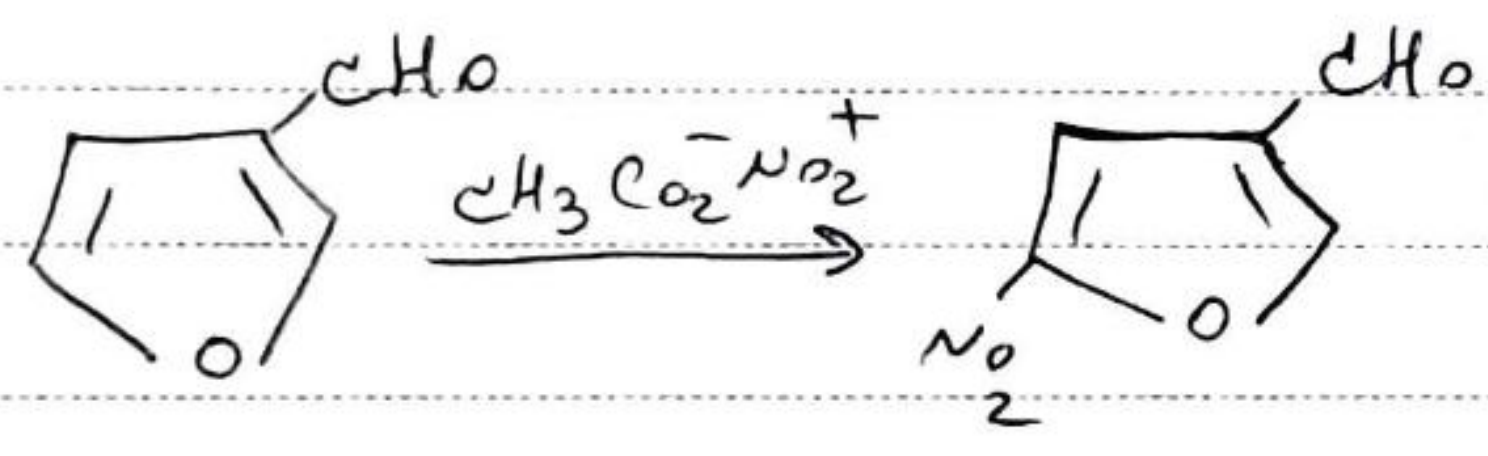 CHO CHO
CH3 CO2⁻ NO2⁺
O O
NO2